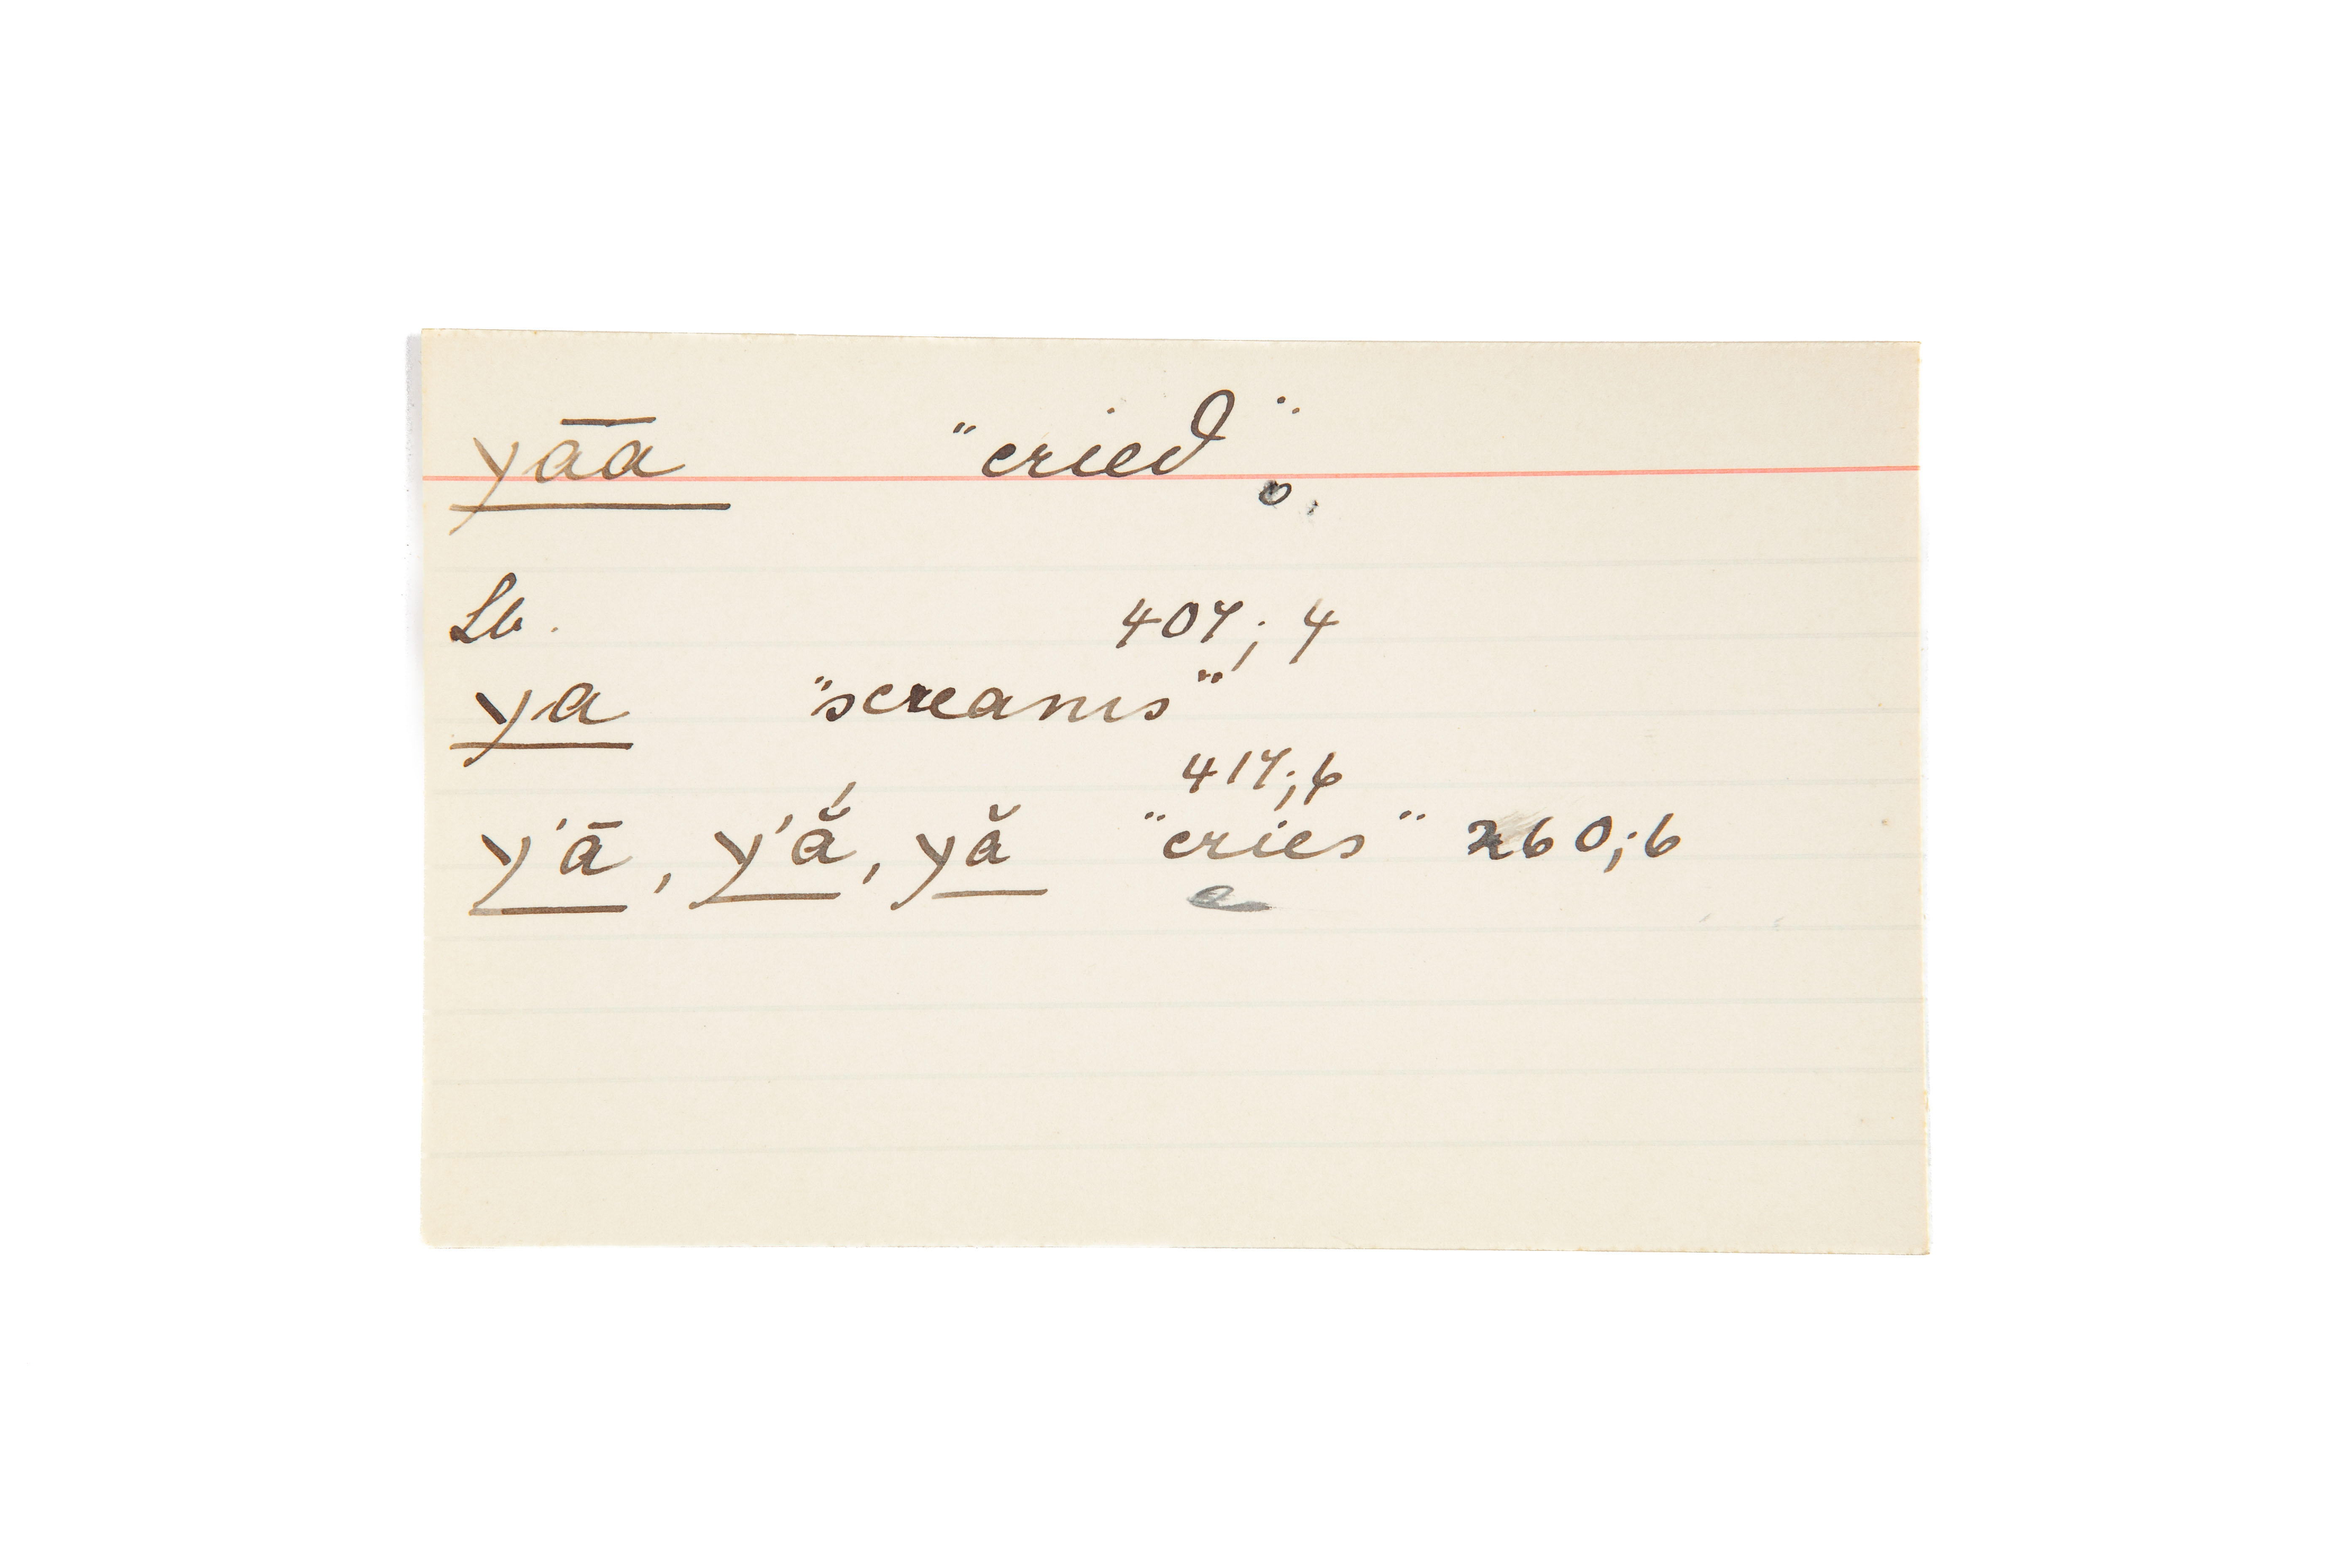 ya͞a "cried".
Lb. 407; 4
ya "screams"
417; 6
y'ā, y'ắ, yă "cries" 260; 6